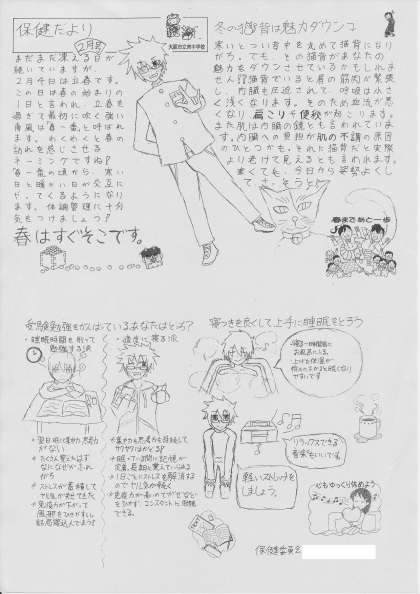 保健だより
2月号
大阪市立本中学校
まだまだ凍える日が
続いていますが、
2月4日は立春です。
この日は春の始まりの
1日と言われ、立春を
過ぎて最初に吹く強い
南風は春一番と呼ばれ
ます。わくわくと春の
訪れを感じさせる
ネーミングですね?
春一番の頃から、寒い
日と暖かい日が交互に
やってくるようになり
ます。体調管理に十分
気をつけましょう?
春はすぐそこです。
冬の猫背は魅力ダウン↴
寒いとつい背中を丸めて猫背になり
がち。でも、その猫背があなたの
魅力をダウンさせているかもしれま
せん?猫背でいると肩の筋肉が緊張
し、内臓も圧迫されて、呼吸は小さ
く浅くなります。そのため血流が悪
くなり、肩こりや便秘がおこります。
また肌は内臓の鏡とも言われていま
す。内臓への負担が肌の不調の原因
のひとつかも。それに猫背だと実際
より老けて見えるとも言われます。
寒くても、今日から姿勢よくし
春まであと一歩
受験勉強をがんばっているあなたはどっち?
・睡眠時間を削って
勉強する派
・適度に寝る派
*翌日明け集中力、思考力
がない
*たくさん覚えたはず
なのになぜかふれ
がち
*ストレスが蓄積して
やる気が失せてきた
*免疫力が下がって
風邪をひきがち…
結局寝込んでしまう
*集中力も思考力も持続して
サクサクはかどる!
*眠っている間に記憶が
定着、長期に覚えていられる
*1日ごとにストレスを解消する
のでやる気が続く
*免疫力が高いのでカゼなど
をひかず、コンスタントに勉強
できる。
寝つきを良くして上手に睡眠をとろう
・寝る一時間前に
お風呂に入る。
上がった体温が
リラックスできる
音楽をきいている。
軽いストレッチを
しましょう。
心もゆっくり休めよう
保健委員会